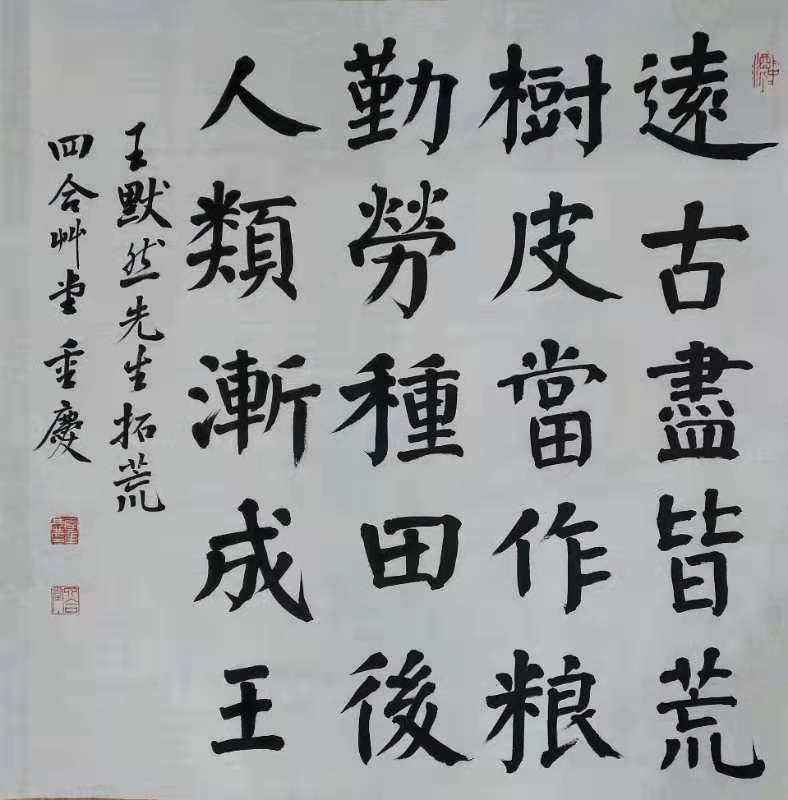 遠古盡皆荒
樹皮當作粮
勤勞種田後
人類漸成王
王默然先生拓荒
四合艸堂重慶